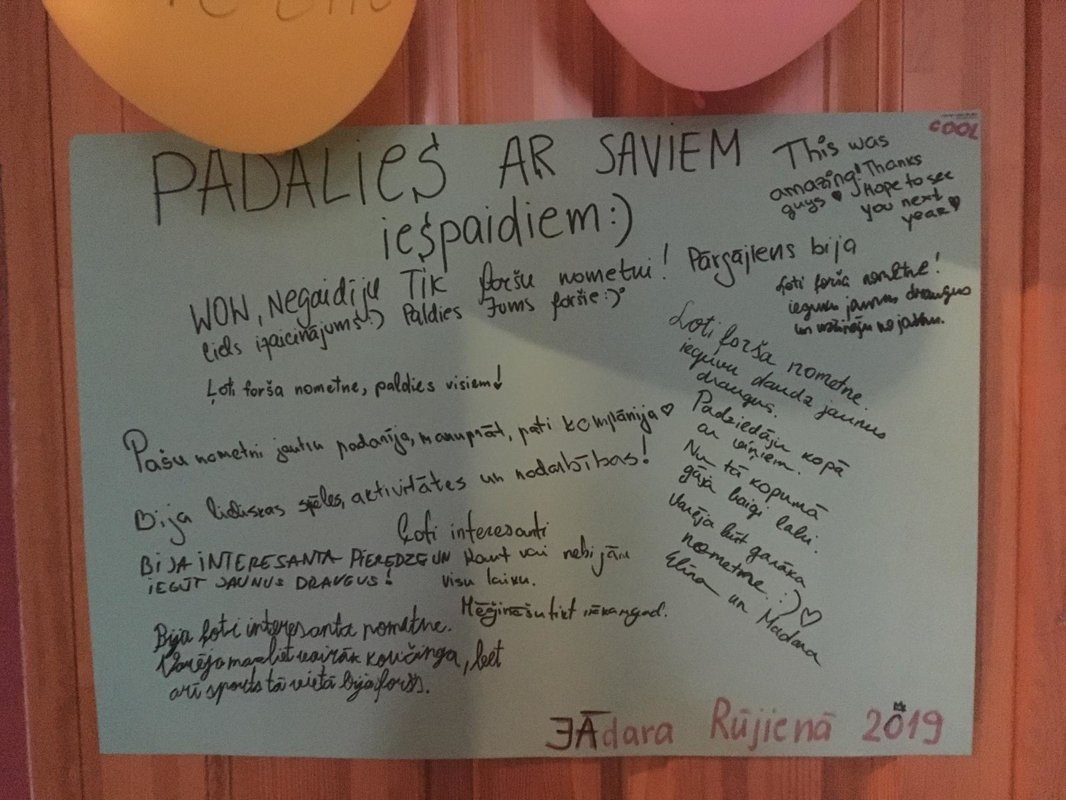 COOL
PADALIEŚ AR SAVIEM
ieśpaidiem:)
This was
amazing! Thanks
guys ♥ Hope to see
you next
year ♥
WOW, Negaidīju Tik foršu nometni! Pārgājiens bija
liels izaicinājums:) Paldies Jums foršie:)
Ļoti forša nometne!
ieguvu jaunus draugus
un
Ļoti forša nometne, paldies visiem!
Ļoti forša nometne
ieguvu daudz jaunus
draugus.
Padziedāju kopā
ar viņiem.
Nu tā kopumā
gāja baigi labi.
Varēja būt garāka
nometne. :) ♡
Elīna un Madara
Pašu nometni jautru padarīja, manuprāt, pati kompānija ♡
Bija lieliskas spēles, aktivitātes un nodarbības!
Ļoti interesanti
kaut vai nebijām
visu laiku.
Mēģināšu tikt
BIJA INTERESANTA PIEREDZE UN
IEGŪT JAUNUS DRAUGUS!
Bija ļoti interesanta nometne.
Varēja mazliet vairāk koučinga, bet
arī sports tā vietā bija foršs.
JĀdara Rūjienā 2019